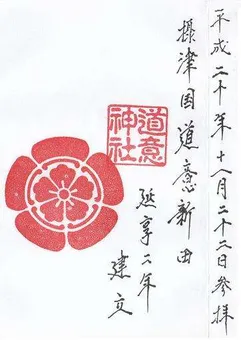 平成二十年十一月二十三日参拝
摂津国道意新田
道意
神社
延享二年
建立